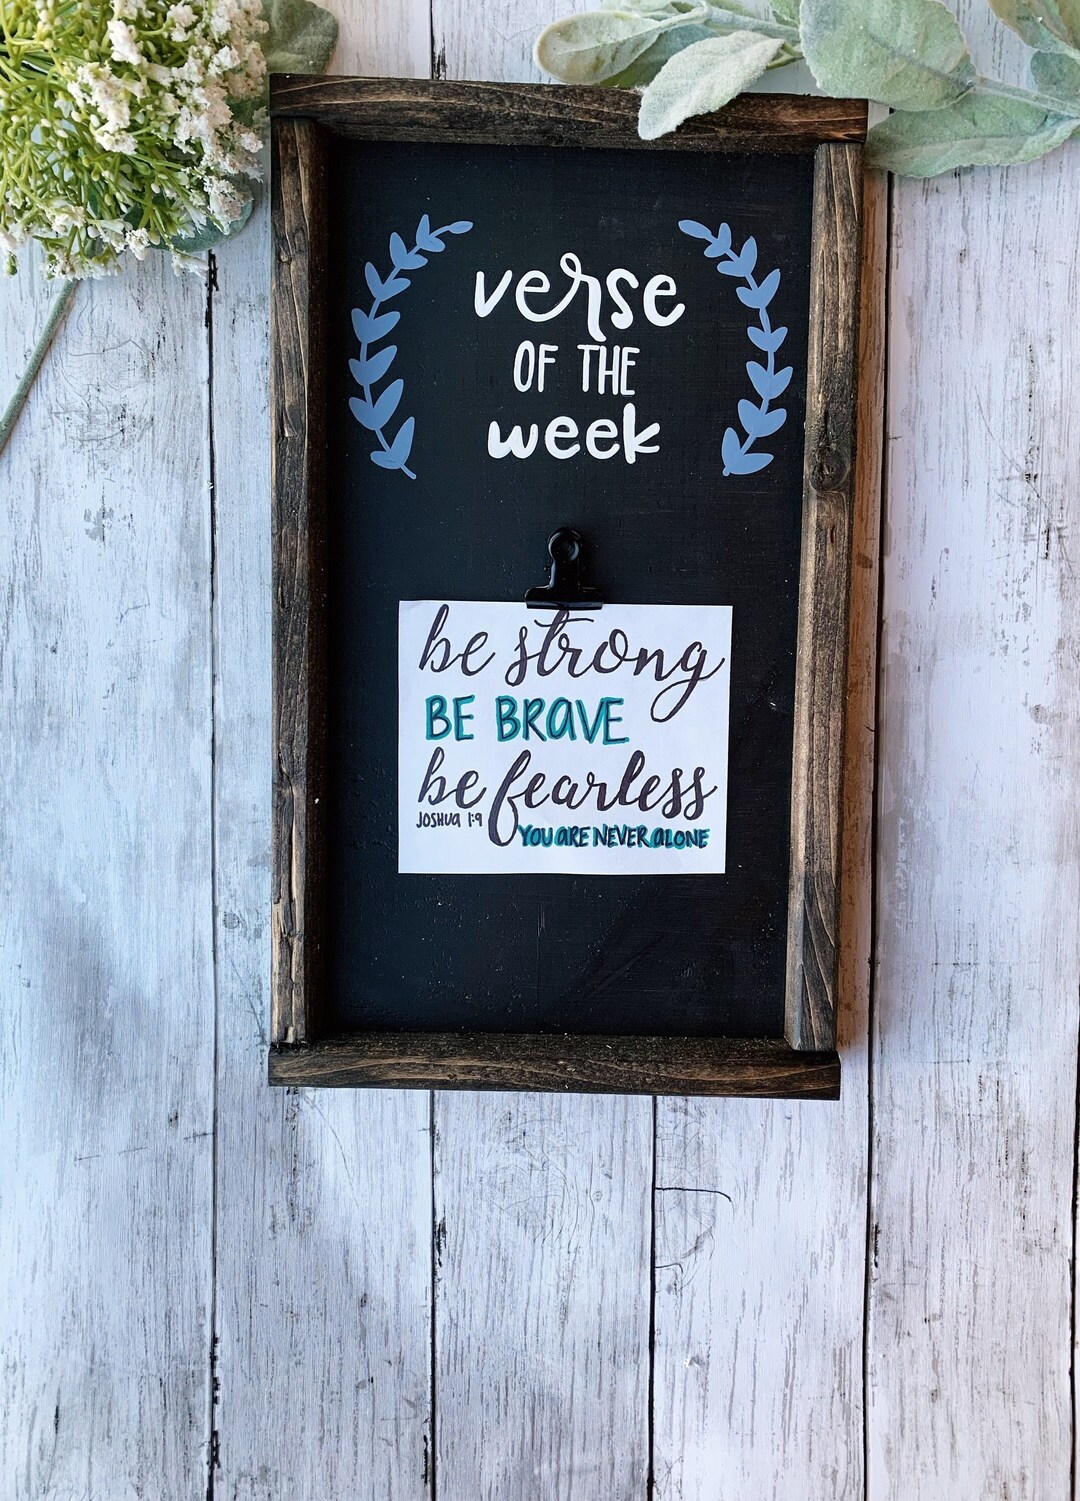 verse
OF THE
week
be strong
BE BRAVE
be fearless
JOSHUA 1:9
YOU ARE NEVER ALONE